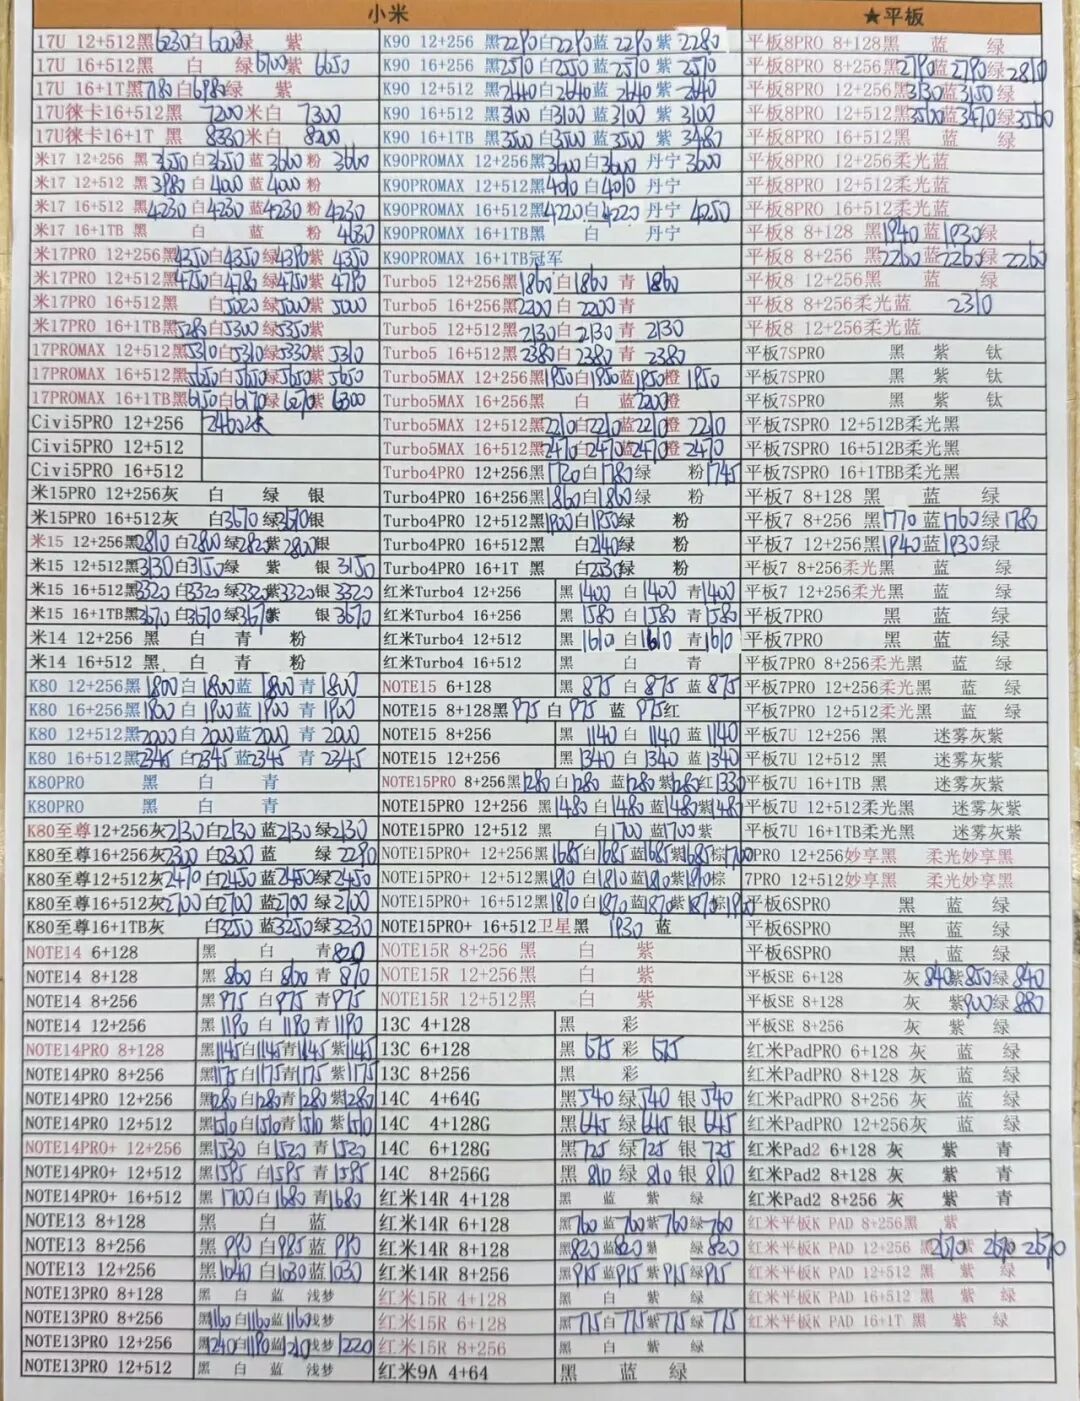 小米
17U 12+512黑6230白6200绿 紫
17U 16+512黑 白 绿6700紫 6650
17U 16+1T黑7180白6980绿 紫
17U徕卡16+512黑 7200米白 7300
17U徕卡16+1T 黑 8330米白 8200
米17 12+256 黑3650白3650蓝3660粉 3660
米17 12+512 黑3980白4000蓝4000粉
米17 16+512 黑4230白4230蓝4230粉4230
米17 16+1TB 黑 白 蓝 粉 4630
米17PRO 12+256黑4350白4350绿4390紫 4350
米17PRO 12+512黑4750白4780绿4750紫 4790
米17PRO 16+512黑 白5020绿5000紫 5000
米17PRO 16+1TB黑5280白5300绿5350紫
17PROMAX 12+512黑5310白5310绿5330紫 5310
17PROMAX 16+512黑5650白5650绿5650紫 5650
17PROMAX 16+1TB黑6150白6170绿6270紫 6300
Civi5PRO 12+256
Civi5PRO 12+512
Civi5PRO 16+512
米15PRO 12+256灰 白 绿 银
米15PRO 16+512灰 白3670绿3670银
米15 12+256黑2810白2800绿2820紫2800银
米15 12+512黑3130白3150绿 紫 银 3150
米15 16+512黑3320白3320绿3320紫3320银 3320
米15 16+1TB黑3670白3670绿3670紫 银 3670
米14 12+256 黑 白 青 粉
米14 16+512 黑 白 青 粉
K80 12+256黑1800白1800蓝 1800青 1800
K80 16+256黑1900白1900蓝 1900青 1900
K80 12+512黑2000白2000蓝2000青 2000
K80 16+512黑2345白2345蓝2345青 2345
K80PRO 黑 白 青
K80PRO 黑 白 青
K80至尊12+256灰2130白2130蓝2130绿2130
K80至尊16+256灰2300白2300蓝 绿 2290
K80至尊12+512灰2470白2450蓝2450绿2450
K80至尊16+512灰2700白2700蓝2700绿2700
K80至尊16+1TB灰 白3250蓝3250绿3230
NOTE14 6+128 黑 白 青820
NOTE14 8+128 黑 860白 860青 870
NOTE14 8+256 黑 975白 975青975
NOTE14 12+256 黑 1190白 1190青1190
NOTE14PRO 8+128 黑1145白1145青1145紫1145
NOTE14PRO 8+256 黑1175白1175青1175紫1175
NOTE14PRO 12+256 黑1280白1280青1280紫1280
NOTE14PRO 12+512 黑1510白1510青1510紫1510
NOTE14PRO+ 12+256 黑1530白1520青1520
NOTE14PRO+ 12+512 黑1595白1595青1595
NOTE14PRO+ 16+512 黑1700白1680青1680
NOTE13 8+128 黑 白 蓝
NOTE13 8+256 黑 990白985蓝 990
NOTE13 12+256 黑1040白1030蓝1030
NOTE13PRO 8+128 黑 白 蓝 浅梦
NOTE13PRO 8+256 黑1160白1160蓝1160浅梦
NOTE13PRO 12+256 黑1240白1190蓝1210浅梦1220
NOTE13PRO 12+512 黑 白 蓝 浅梦
K90 12+256 黑2290白2290蓝 2290紫 2280
K90 16+256 黑2570白2550蓝2570紫 2570
K90 12+512 黑2640白2640蓝 2640紫 2640
K90 16+512 黑3100白3100蓝3100紫 3100
K90 16+1TB 黑3500白3500蓝3500紫 3480
K90PROMAX 12+256黑3600白3600丹宁 3600
K90PROMAX 12+512黑4010白4010丹宁
K90PROMAX 16+512黑4220白4220丹宁 4250
K90PROMAX 16+1TB黑 白 丹宁
K90PROMAX 16+1TB冠军
Turbo5 12+256黑1860白1860青 1860
Turbo5 16+256黑2200白2200青
Turbo5 12+512黑2130白2130青 2130
Turbo5 16+512黑2380白2380青 2380
Turbo5MAX 12+256黑1950白1950蓝1950橙 1950
Turbo5MAX 16+256黑 白 蓝2200橙
Turbo5MAX 12+512黑2210白2210蓝2210橙 2210
Turbo5MAX 16+512黑2470白2470蓝2470橙 2470
Turbo4PRO 12+256黑1720白1780绿 粉1745
Turbo4PRO 16+256黑1860白1860绿 粉
Turbo4PRO 12+512黑1900白1950绿 粉
Turbo4PRO 16+512黑 白2140绿 粉
Turbo4PRO 16+1T 黑 白2530绿 粉
红米Turbo4 12+256 黑1400 白1400 青1400
红米Turbo4 16+256 黑1580 白1580 青1580
红米Turbo4 12+512 黑1610 白1610 青1610
红米Turbo4 16+512 黑 白 青
NOTE15 6+128 黑 875 白 875 蓝 875
NOTE15 8+128黑 975白 975 蓝 975红
NOTE15 8+256 黑 1140 白 1140 蓝1140
NOTE15 12+256 黑 1340 白 1340 蓝1340
NOTE15PRO 8+256黑1280白1280 蓝1280紫1280红1330
NOTE15PRO 12+256 黑1480白1480蓝1480紫1480
NOTE15PRO 12+512 黑 白1700蓝1700紫
NOTE15PRO+ 12+256黑1685白1685蓝1685紫1685棕1700
NOTE15PRO+ 12+512黑1810白1810蓝1810紫1810棕
NOTE15PRO+ 16+512黑1870白1870蓝1870紫1870棕1900
NOTE15PRO+ 16+512卫星黑 1930 蓝
NOTE15R 8+256 黑 白 紫
NOTE15R 12+256黑 白 紫
NOTE15R 12+512黑 白 紫
13C 4+128 黑 彩
13C 6+128 黑 675 彩 675
13C 8+256 黑 彩
14C 4+64G 黑540 绿540 银 540
14C 4+128G 黑645 绿645 银 645
14C 6+128G 黑725 绿725 银 725
14C 8+256G 黑 810 绿 810 银 810
红米14R 4+128 黑 蓝 紫 绿
红米14R 6+128 黑760蓝760紫760绿760
红米14R 8+128 黑820蓝820紫 绿 820
红米14R 8+256 黑915蓝915紫915绿915
红米15R 4+128 黑 白 紫 绿
红米15R 6+128 黑775白775紫775绿 775
红米15R 8+256 黑 白 紫 绿
红米9A 4+64 黑 蓝 绿
★平板
平板8PRO 8+128黑 蓝 绿
平板8PRO 8+256黑2790蓝2790绿2810
平板8PRO 12+256黑3130蓝3150绿
平板8PRO 12+512黑3560蓝3470绿3560
平板8PRO 16+512黑 蓝 绿
平板8PRO 8+256柔光蓝
平板8PRO 12+512柔光蓝
平板8PRO 16+512柔光蓝
平板8 8+128 黑1940蓝1930绿
平板8 8+256 黑2260蓝2260绿2260
平板8 12+256黑 蓝 绿
平板8 8+256柔光蓝 2310
平板8 12+256柔光蓝
平板7SPRO 黑 紫 钛
平板7SPRO 黑 紫 钛
平板7SPRO 黑 紫 钛
平板7SPRO 12+512B柔光黑
平板7SPRO 16+512B柔光黑
平板7SPRO 16+1TBB柔光黑
平板7 8+128 黑 蓝 绿
平板7 8+256 黑1770蓝1760绿1780
平板7 12+256黑1940蓝1930绿
平板7 8+256柔光黑 蓝 绿
平板7 12+256柔光黑 蓝 绿
平板7PRO 黑 蓝 绿
平板7PRO 黑 蓝 绿
平板7PRO 8+256柔光黑 蓝 绿
平板7PRO 12+256柔光黑 蓝 绿
平板7PRO 12+512柔光黑 蓝 绿
平板7U 12+256 黑 迷雾灰紫
平板7U 12+512 黑 迷雾灰紫
平板7U 16+1TB 黑 迷雾灰紫
平板7U 12+512柔光黑 迷雾灰紫
平板7U 16+1TB柔光黑 迷雾灰紫
7PRO 12+256妙享黑 柔光妙享黑
7PRO 12+512妙享黑 柔光妙享黑
平板6SPRO 黑 蓝 绿
平板6SPRO 黑 蓝 绿
平板6SPRO 黑 蓝 绿
平板SE 6+128 灰 840紫850绿 840
平板SE 8+128 灰 紫900绿 880
平板SE 8+256 灰 紫 绿
红米PadPRO 6+128 灰 蓝 绿
红米PadPRO 8+128灰 蓝 绿
红米PadPRO 8+256灰 蓝 绿
红米PadPRO 12+256灰 蓝 绿
红米Pad2 6+128 灰 紫 青
红米Pad2 8+128 灰 紫 青
红米Pad2 8+256 灰 紫 青
红米平板K PAD 8+256黑 紫
红米平板K PAD 12+256 黑2670紫 2670 2670
红米平板K PAD 12+512 黑 紫 绿
红米平板K PAD 16+512 黑 紫 绿
红米平板K PAD 16+1T 黑 紫 绿